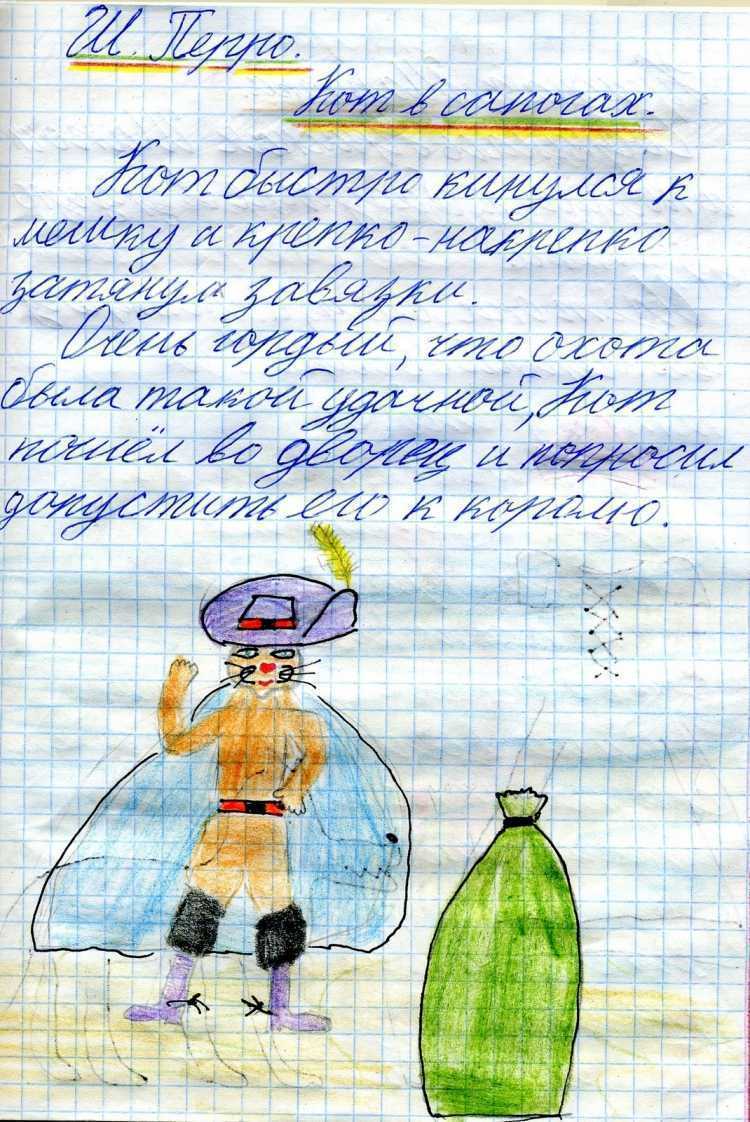 Ш. Перро.
Кот в сапогах.
Кот быстро кинулся к
мешку и крепко-накрепко
затянул завязки.
Очень гордый, что охота
была такой удачной, Кот
пошёл во дворец и попросил
допустить его к королю.